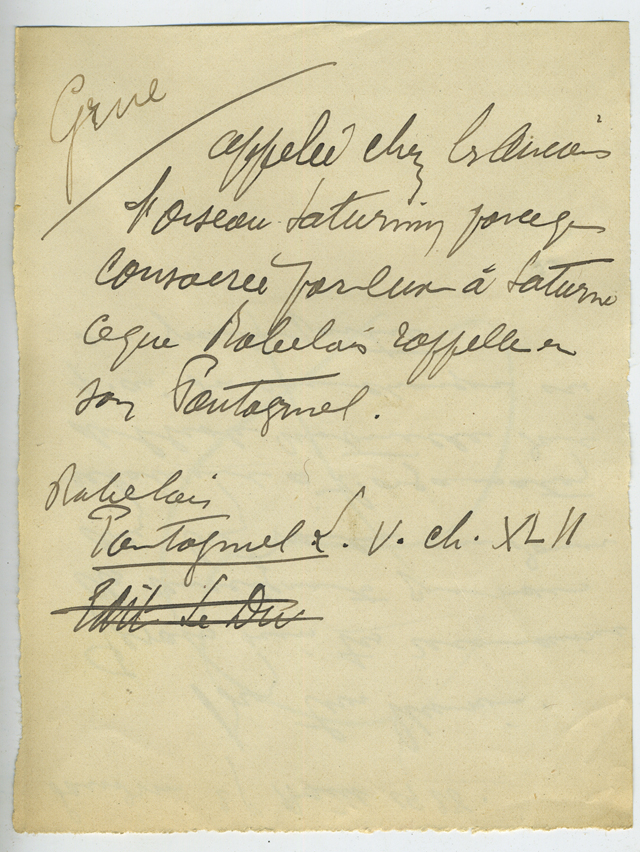 Grue
appelée chez les Anciens
l'oiseau Saturnin parceque
consacrée par eux à Saturne
ce que Rabelais rappelle en
son Pantagruel.
Rabelais
Pantagruel L. V. ch. XLII
Edit Le Duc